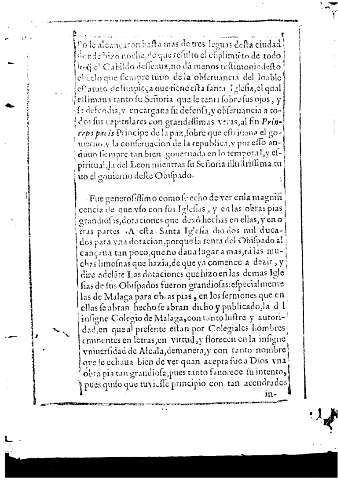 no le alcançaron hasta mas de tres leguas desta ciudad
donde hizo noche, de que resulto el cūplimiēto de todo
lo q̄ el Cabildo desseaua, no dà menos testimonio desto
el celo que siempre tuuo de la obseruancia del loable
estatuto de limpieça que tiene esta santa Iglesia, el qual
estimaua tanto su Señoria que le tenia sobre sus ojos, y
se defendia, y encargaua su defensa, y obseruancia a to-
dos sus capitulares con grandissimas veras, al fin Prin-
ceps pacis Principe de la paz, sobre que estriuaua el go-
uierno, y la conseruacion de la republica, y por esso an-
duuo siempre tan bien gouernada en lo temporal, y es-
piritual, la de Leon mientras su Señoria illustrissima tu
uo el gouierno deste Obispado.
Fue generosissimo como se echo de ver en la magnifi
cencia de que vso con sus Iglesias, y en las obras pias
grandiosas, dotaciones que dexò hechas en ellas, y en o
tras partes. A esta Santa Iglesia dio dos mil duca-
dos para vna dotacion, porque la renta del Obispado al
cançaua tan poco, que no daua lugar a mas, rà las mu-
chas limosnas que hazia, de que ya comence a dezir, y
dire adelāte Las dotaciones que hizo en las demas Igle
sias de sus Obispados fueron grandiosas: especialmente
las de Malaga para obras pias, en los sermones que en
ellas se abran hecho se abran dicho y publicado, la d l
insigne Colegio de Malaga, con tanto lustre y autori-
dad, en que al presente estan por Colegiales hombres
eminentes en letras, en virtud, y florecen en la insigne
vniuersidad de Alcala, demanera, y con tanto nombre
que se echaua bien de ver quan acepta fue a Dios vna
obra pia tan grandiosa, pues tanto fauorece su intento,
pues quiso que tuuiesse principio con tan acendrados
in-